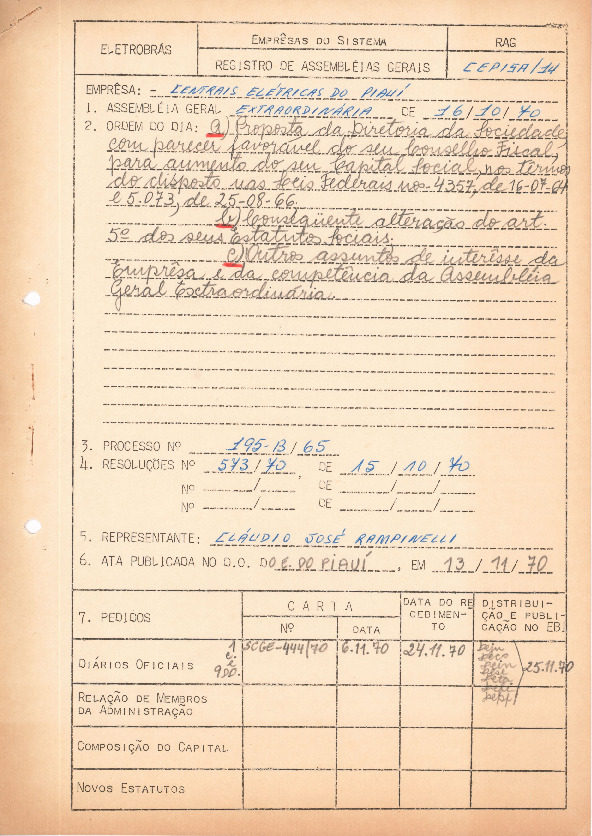 ELETROBRÁS
EMPRÊSAS DO SISTEMA
RAG
REGISTRO DE ASSEMBLÉIAS GERAIS
CEPISA/14
EMPRÊSA: - CENTRAIS ELÉTRICAS DO PIAUÍ
1. ASSEMBLÉIA GERAL EXTRAORDINÁRIA DE 16/10/70
2. ORDEM DO DIA: a) Proposta da Diretoria da Sociedade
com parecer favorável do seu Conselho Fiscal,
para aumento do seu Capital Social, nos têrmos
do disposto nas Leis Federais nos. 4357, de 16-07-64
e 5.073, de 25-08-66.
b) Conseqüente alteração do art.
5º dos seus Estatutos Sociais.
c) Outros assuntos de interêsse da
Emprêsa e da competência da Assembléia
Geral Extraordinária.
3. PROCESSO Nº 195-B/65
4. RESOLUÇÕES Nº 573/70, DE 15/10/70
Nº / DE / /
Nº / DE / /
5. REPRESENTANTE: CLÁUDIO JOSÉ RAMPINELLI
6. ATA PUBLICADA NO D.O. DO E. DO PIAUÍ, EM 13/11/70
7. PEDIDOS
CARTA
Nº
DATA
DATA DO RE
CEDIMEN-
TO
DISTRIBUI-
ÇÃO E PUBLI-
CAÇÃO NO EBI
DIÁRIOS OFICIAIS
SCGE-444/70
6.11.70
24.11.70
25.11.70
RELAÇÃO DE MEMBROS
DA ADMINISTRAÇÃO
COMPOSIÇÃO DO CAPITAL
NOVOS ESTATUTOS